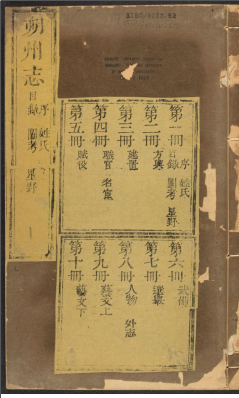 朔州志
序 姓氏
目錄 圖考 星野
第一冊 序 姓氏 目錄 圖考 星野
第二冊 方輿
第三冊 建置
第四冊 職官 名宦
第五冊 賦役
第六冊 武備
第七冊 選舉
第八冊 人物 外志
第九冊 藝文上
第十冊 藝文下